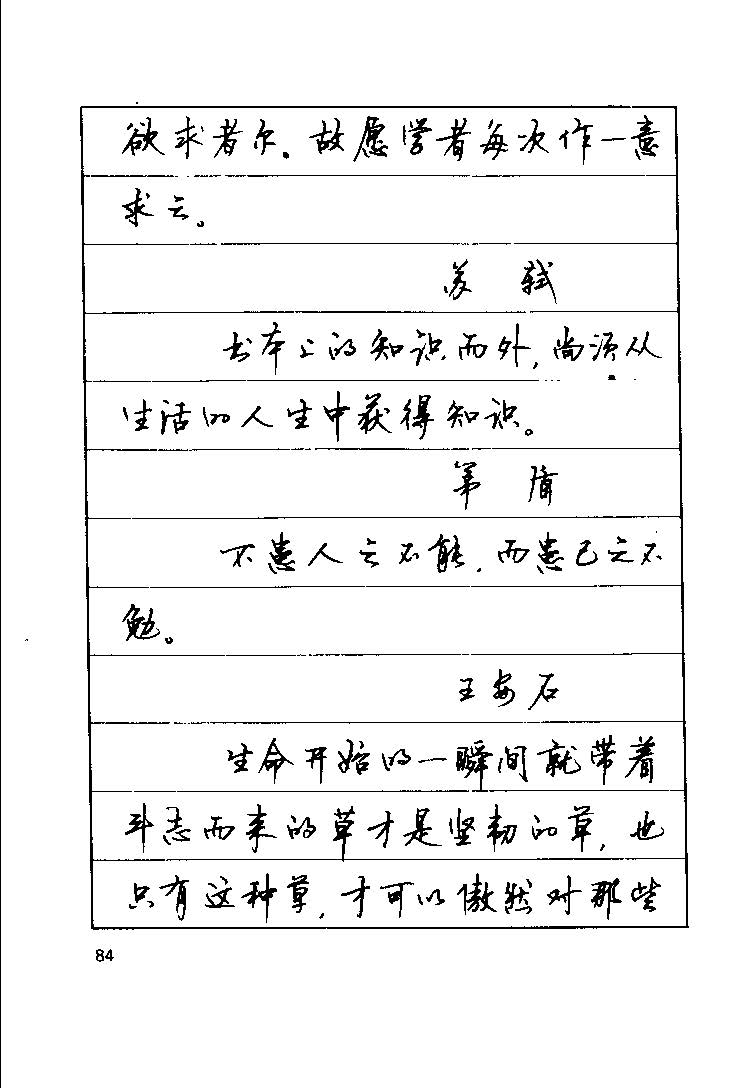 欲求者尔。故愿学者每次作一意
求之。
苏 轼
书本上的知识而外，尚须从
生活的人生中获得知识。
茅 盾
不患人之不能，而患己之不
勉。
王安石
生命开始的一瞬间就带着
斗志而来的草才是坚韧的草，也
只有这种草，才可以傲然对那些
84